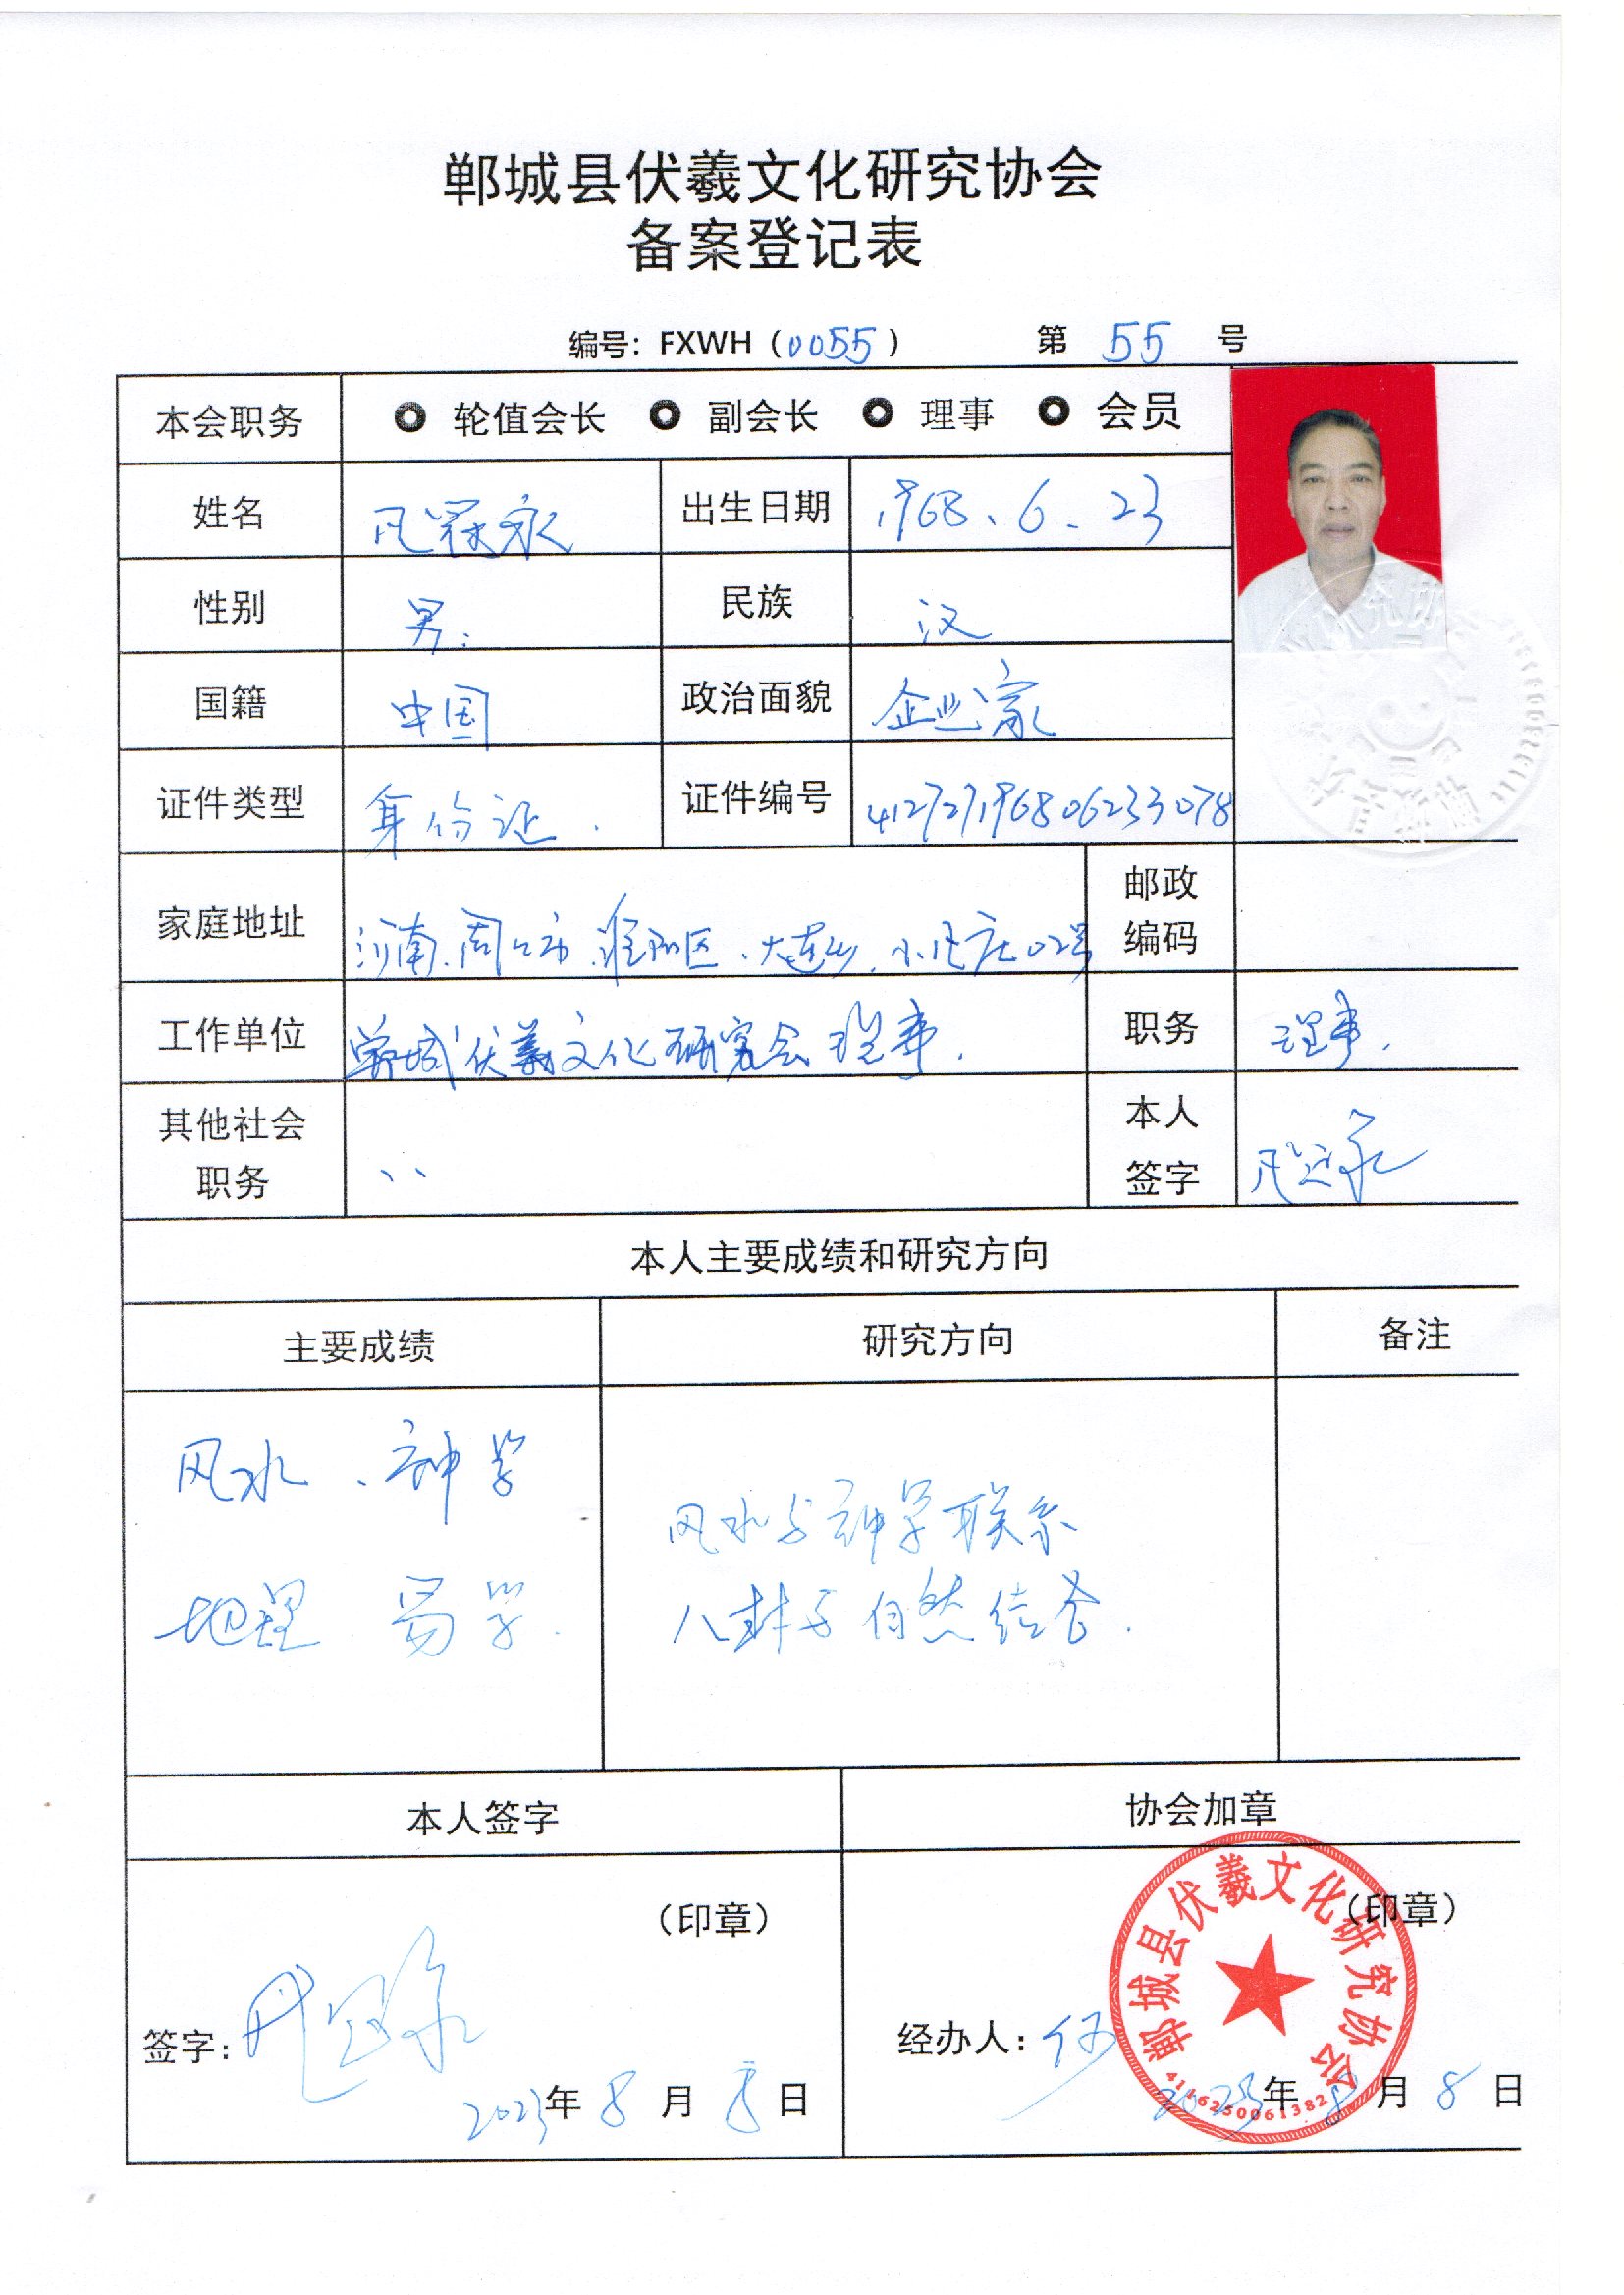 郸城县伏羲文化研究协会
备案登记表
编号：FXWH（0055） 第 55 号
本会职务 轮值会长 副会长 理事 会员
姓名 出生日期 1968、6、23
性别 男 民族 汉
国籍 中国 政治面貌 企业家
证件类型 身份证 证件编号 412727196806233078
家庭地址 河南、周口市、淮阳区、大连乡、小 庄02号 邮政编码
工作单位 郸城伏羲文化研究会理事 职务 理事
其他社会职务 本人签字
本人主要成绩和研究方向
主要成绩 研究方向 备注
风水、神学
地理 易学
风水与神学联系
八卦与自然结合
本人签字 协会加章
（印章） （印章）
签字： 经办人：
2023年8月8日 2023年8月8日
郸城县伏羲文化研究协会
4116250061382